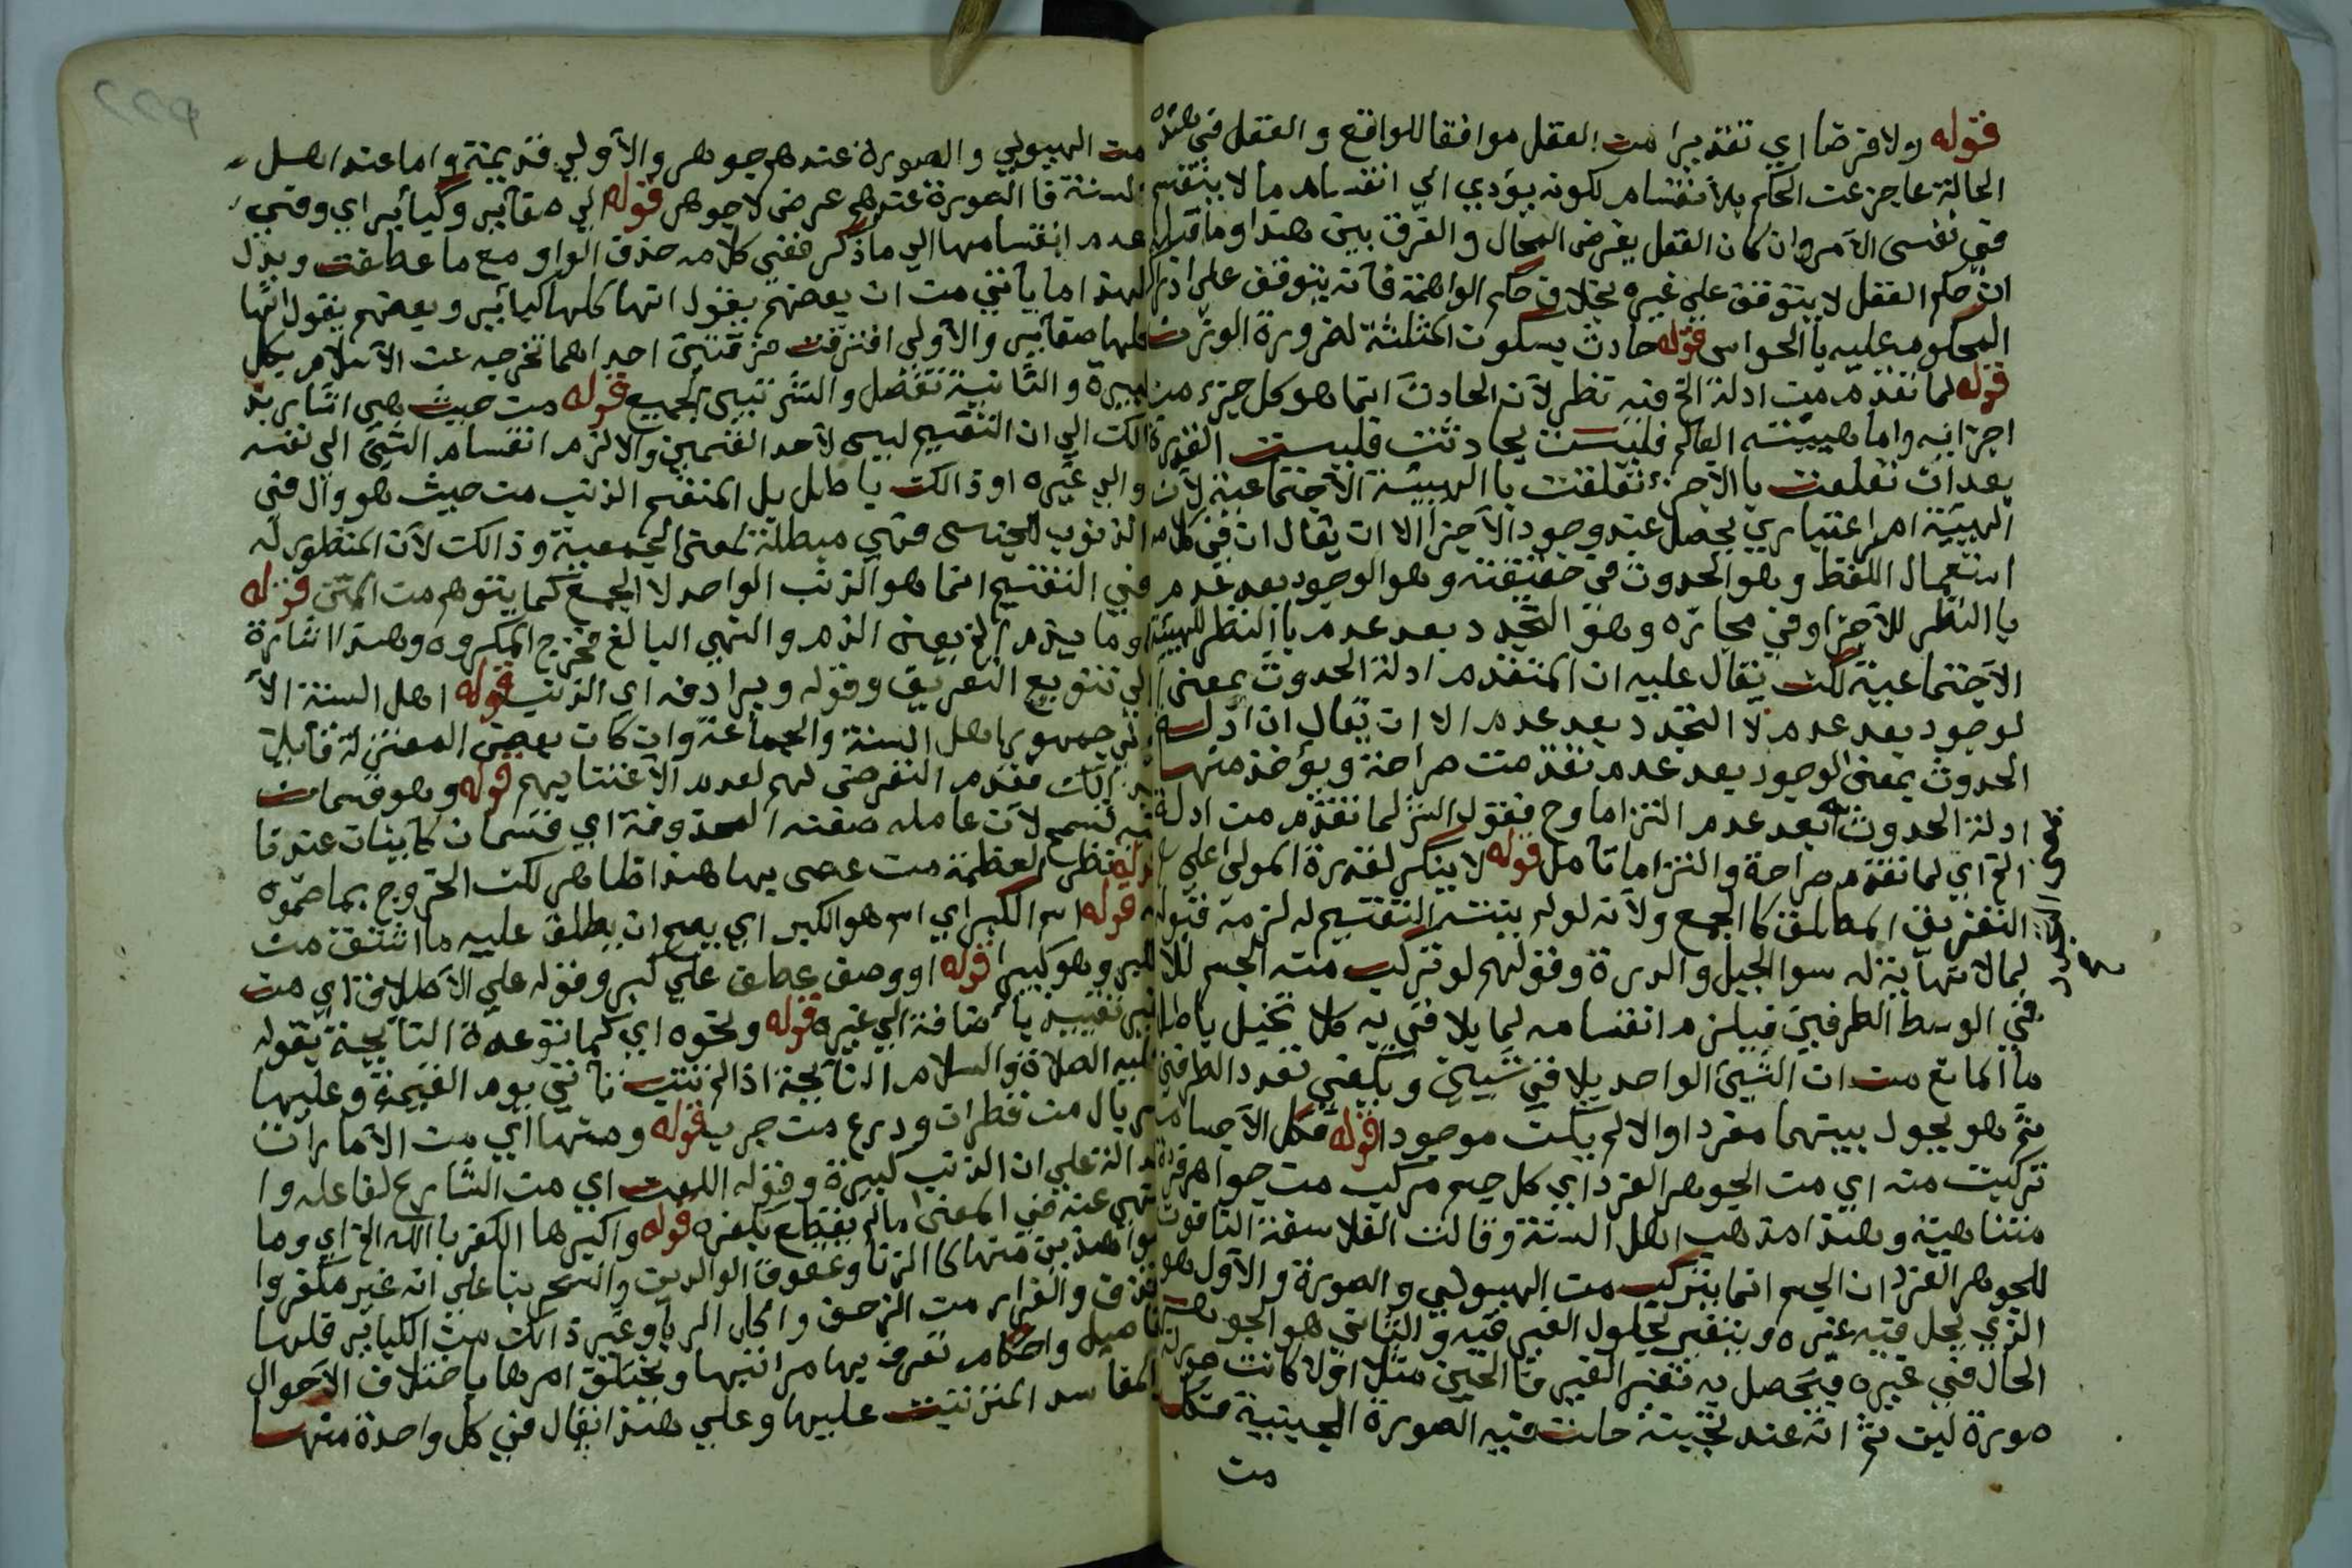 قوله ولا فرضا اي تقديرا من العقل موافقا للواقع و العقل في هذه
الحالة عاجز عن الحكم بلأنقسام لكونه يؤدي الي انقسام ما لا ينقسم
في نفس الآمر وان كان العقل يفرض المحال و الفرق بين هذا وما قبله
ان حكم العقل لا يتوقف علي غيره بخلاف حكم الواهمة فآنه يتوقف علي ادراك
المحكوم عليه باالحواس قوله حادث بسكون المثلثة لضرورة الوزن
قوله لما تقدم من ادلة الخ فيه نظر لآن الحادث انما هو كل جزء من
اجزايه واما هييته العالم فليست بحادثت فليست القدرة
بعد ان تعلقت باالآجزء تعلقت باالهيئة الآجتماعية لآن
الهيئة امر اعتباري يحصل عند وجود الآجزا الا ان يقال ان في كلامه
استعمال اللفظ وهو الحدوث في حقيقته وهو الوجود بعد عدم
باالنظر للآجزا وفي مجازه وهو التجدد بعد عدم باالنظر للهيئة
الآجتماعية لكن يقال عليه ان المتقدم ادلة الحدوث بمعني ا
لوجود بعد عدم لا التجدد بعد عدم الا ان يقال ان ادلة
الحدوث بمعني الوجود بعد عدم تقدمت صراحة ويؤخذ منها
ادلة الحدوث بعد عدم التزاما وح فقول الش لما تقدم من ادلة
الخ اي لما تقدم صراحة والتزاما تآمل قوله لا ينكر لقدرة المولى علي
التفريق المطلق كا الجمع ولآنه لو لم ينته التقسيم له لزمة قبوله
لما لا نهآية له سوا الجبل و الدرة وقولهم لو تركب منه الجسم للا
في الوسط الطرفين فيلزم انقسامه لما يلاقي به كلا تخيل باطل
ما المانع من ان الشيئ الواحد يلاقي شيين ويكفي تعدد الطرفين
ثم هو يحول بينهما مفردا والا لم يكن موجودا قوله فكل الآجسام
تركبت منه اي من الجوهر الفرد اي كل جسم مركب من جواهر فردة
متناهية وهذا مذهب اهل السنة وقالت الفلاسفة النافون
للجوهر الفرد ان الجسم انما يتركب من الهيولي والصورة والآول هو
الذي يحل فيه غيره ويتغير بحلول الغير فيه والثاني هو الجوهر
الحال في غيره فيحصل به تغير الغير فاالجين مثلا اولا كانت صورته
صورة لبن ثم انه عند تجبينه حلت فيه الصورة الجينية فكل
من
من الهيولي والصورة عندهم جوهر والآولي قديمة واما عند اهل
السنة فا الصورة عندهم عرض لا جوهر قوله لي صغآير وكبآير اي وفي
عدم انقسامها الي ما ذكر ففي كلامه حذف الواو مع ما عطفت ويدل
لهذا ما يآتي من ان بعضهم يقول انها كلها كبآير وبعضهم يقول انها
كلها صغآير والآولي افترقت فرقتين احداهما تخرجه عن الآسلام بكل
كبيرة والثانية تفصل والش نتيبي الجميع قوله من حيث هي اشار بذ
الك الي ان التقسيم ليس لآحد القسمين والا لزم انقسام الشيئ الي نفسه
والي غيره اوذالك باطل بل المنقسم الذنب من حيث هو وال في
الذنوب للجنس فهي مبطلة لمعني الجمعية وذالك لآن المنظور له
في التقسيم انما هو الذنب الواحد لا الجمع كما يتوهم من المتن قوله
وما يذم الخ يعني الذم والنهي البالغ فخرج المكروه وهذا اشارة
الي تنويع التعريف وقوله ويرادفه اي الذنب قوله اهل السنة الآ
ولي جمهور اهل السنة والجماعة وان كان بعض المعتزلة قآيلا
بذالك فعدم التعرض لهم لعدم الآعتنا بهم قوله وهو قسمان
فيه تسمح لآن عامله صفته المحذوفة اي قسمان كاينان عندنا
قوله نظر العظمة من عصي بها هذا ظاهر لكن الخروج بما ضموه
قوله اسم الكبر اي اسم هو الكبر اي يصح ان يطلق عليه ما اشتق من
الكبر وهو كبير قوله او وصف عطف علي كبر وقوله علي الآطلاق اي من
غير تقييد باضافة الي غيره قوله ونحوه اي كما توعده النآيحة بقوله
عليه الصلاة والسلام النآيحة اذا لم تتب تآتي يوم القيمة وعليها
سربال من قطران ودرع من جرب قوله ومنها اي من الآمارات
الدالة علي ان الذنب كبيرة وقوله اللعن اي من الشارع لفاعله وا
نهي عنه في المعني ما لم يقطع بكفره قوله واكبرها الكفر باالله الخ اي وما
سواهذين منها كا الزنا وعقوق الوالدين والسحر بنا علي انه غير مكفر وا
لقذف والفرار من الزحف واكل الربآ وغير ذالك من الكبآير فلها
تفاصيل واحكام تعرف بها مراتبها ويختلف امرها باختلاف الآحوال
المفاسد المترتبت عليها وعلي هذا يقال في كل واحدة منها